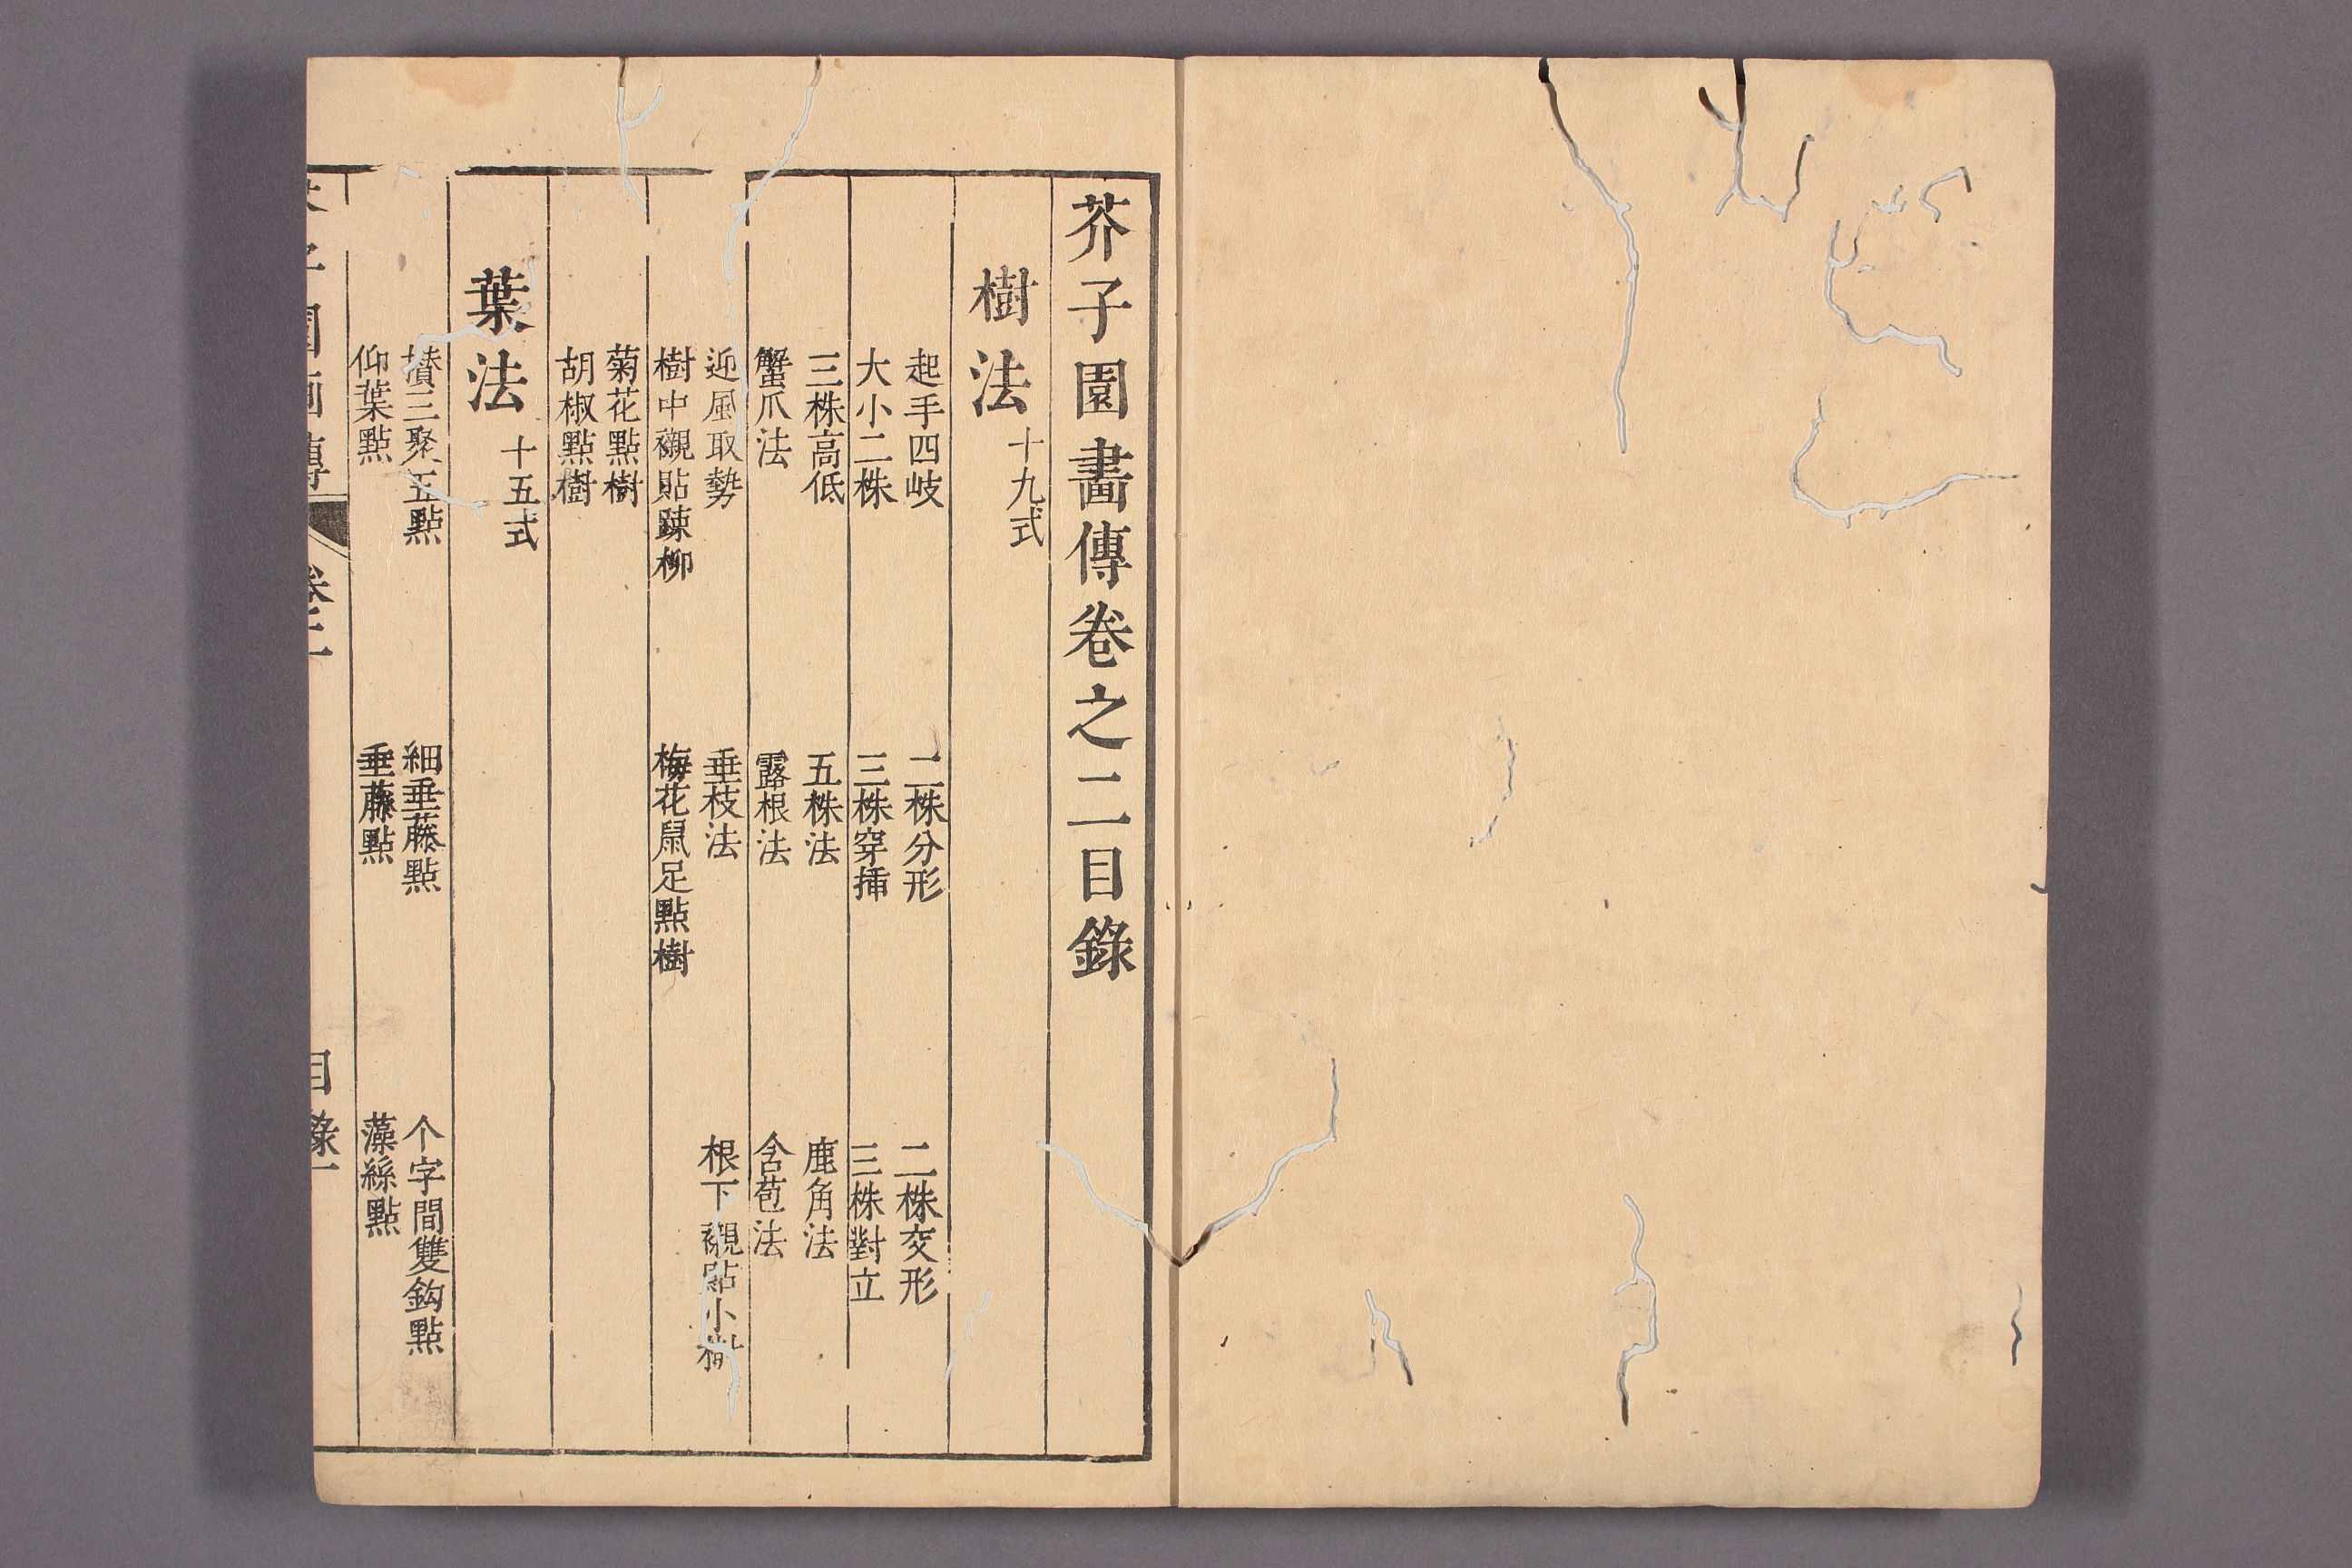 芥子園畫傳卷之二目錄
樹法 十九式
起手四岐 二株分形 二株交形
大小二株 三株穿揷 三株對立
三株高低 五株法 鹿角法
蟹爪法 露根法 含苞法
迎風取勢 垂枝法 根下襯貼小樹
樹中襯貼踈柳 梅花鼠足點樹
菊花點樹
胡椒點樹
葉法 十五式
攢三聚五點 細垂藤點 个字間雙鈎點
仰葉點 垂藤點 藻絲點
子園畫傳 卷二 目錄一